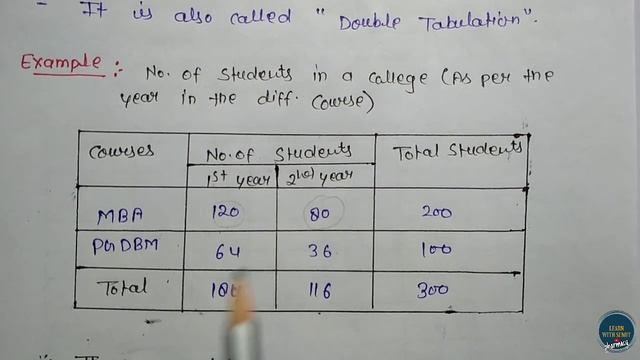 - It is also called "Double Tabulation".
Example:- No. of Students in a college (As per the
year in the diff. course)
Courses No. of Students Total Students
1st year 2nd year
MBA 120 80 200
PGDBM 64 36 100
Total 116 300
LEARN
WITH SUMIT